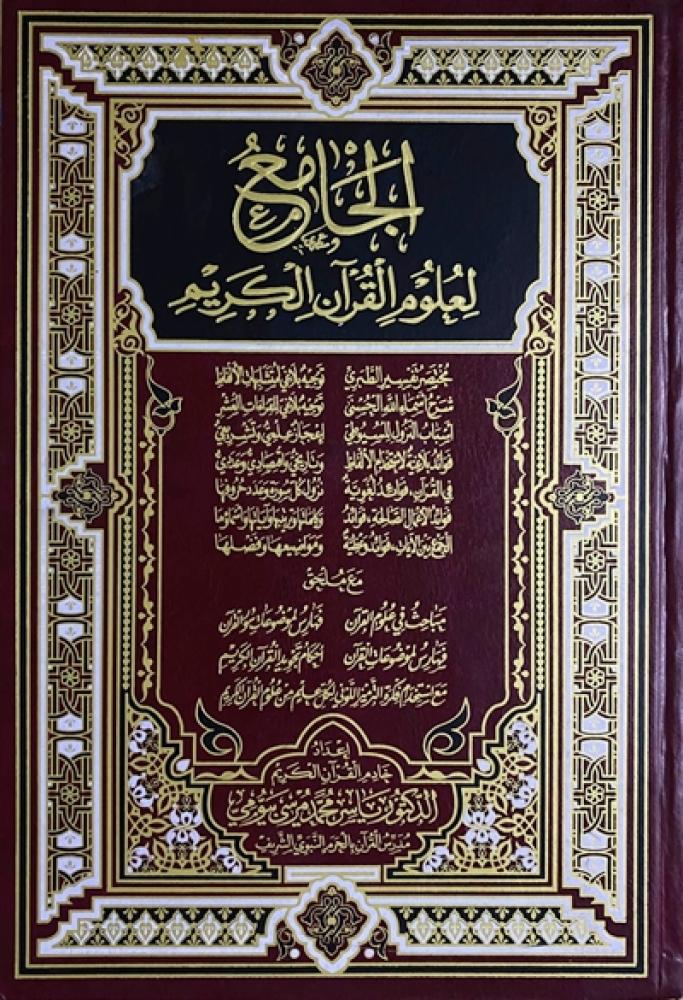 الجامع
لعلوم القرآن الكريم
مختصر تفسير الطبري توجيه بلاغي لمتشابهات الألفاظ
شرح أسماء الله الحسنى توجيه بلاغي للقراءات العشر
أسباب النزول للسيوطي إعجاز علمي وتشريعي
فوائد بلاغية لاستخدام الألفاظ وتاريخي واقتصادي وعددي
في القرآن، فوائد لغوية نزول كل سورة وعدد حروفها
فوائد الأعمال الصالحة، فوائد وكلماتها وترتيبها وآياتها وأسماؤها
الجمع بين الآيات، فوائد ومواضيعها وفضلها
مع ملحق
مباحث في علوم القرآن فهارس لموضوعات سور القرآن
فهارس لموضوعات القرآن أحكام تجويد القرآن الكريم
مع استخدام فكرة الترميز اللوني لكل علم من علوم القرآن الكريم
إعداد
خادم القرآن الكريم
الدكتور ياسر محمد مرسي بيومي
مدرس القرآن بالحرم النبوي الشريف